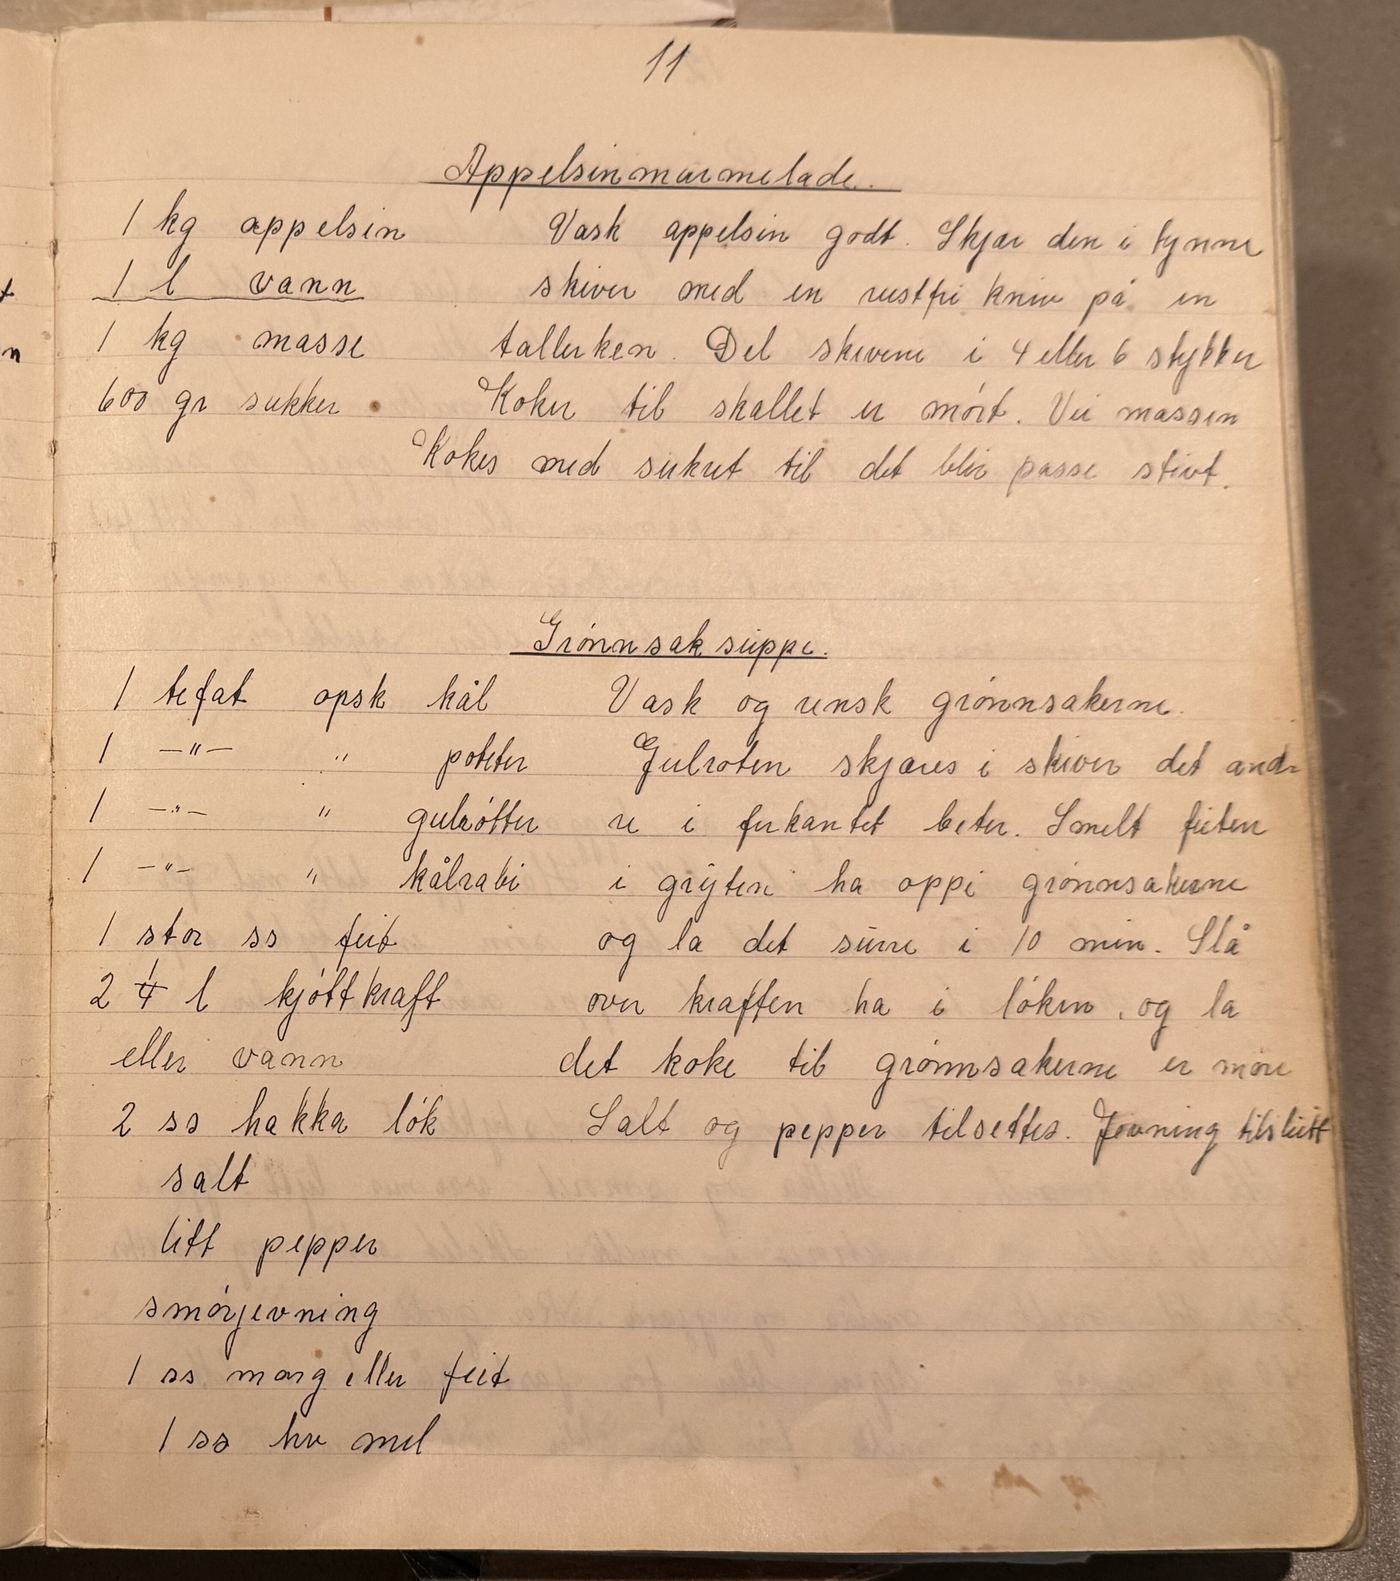 11
Appelsinmarmelade.
1 kg appelsin Vask appelsin godt. Skjær den i tynne
1 l vann skiver med en rustfri kniv på en
1 kg masse tallerken. Del skivene i 4 eller 6 stykker
600 gr sukker Koker til skallet er mørt. Vei massen
Kokes med sukret til det blir passe stivt.
Grønnsaksuppe.
1 tefat opsk kål Vask og rensk grønnsakerne.
1 —"— " poteter Gulroten skjæres i skiver det and-
1 —"— " gulrøtter re i firkantet beter. Smelt feiten
1 —"— " kålrabi i gryten ha oppi grønnsakerne
1 stor ss feit og la det surre i 10 min. Slå
2 1/4 l kjøttkraft over kraften ha i løken, og la
eller vann det koke til grønnsakerne er møre
2 ss hakka løk Salt og pepper tilsettes. Jevning tilslutt
salt
litt pepper
smørjevning
1 ss marg eller feit
1 ss hv mel